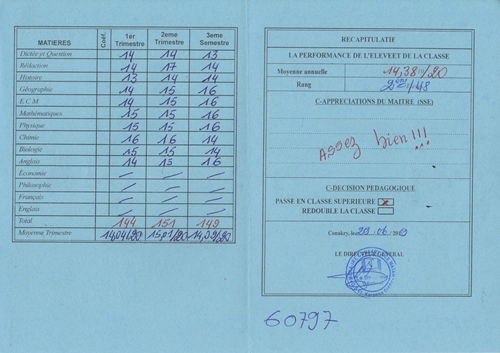 MATIERES Coéf. 1er Trimestre 2eme Trimestre 3eme Semestre
Dictée et Question 14 14 13
Rédaction 14 17 14
Histoire 13 14 14
Géographie 14 15 16
E C M 14 15 16
Mathématiques 15 15 16
Physique 15 15 16
Chimie 16 16 14
Biologie 15 15 14
Anglais 14 15 16
Economie
Philosophie
Français
Englais
Total 144 151 149
Moyenne Trimestre
RECAPITULATIF
LA PERFORMANCE DE L'ELEVEET DE LA CLASSE
Moyenne annuelle 14,38/20
Rang 2em/48
C-APPRECIATIONS DU MAITRE (SSE)
ASSEZ bien!!!
C-DECISION PEDAGOGIQUE
PASSE EN CLASSE SUPERIEURE
REDOUBLE LA CLASSE
Conakry, le
LE DIRECTEUR GENERAL
60797